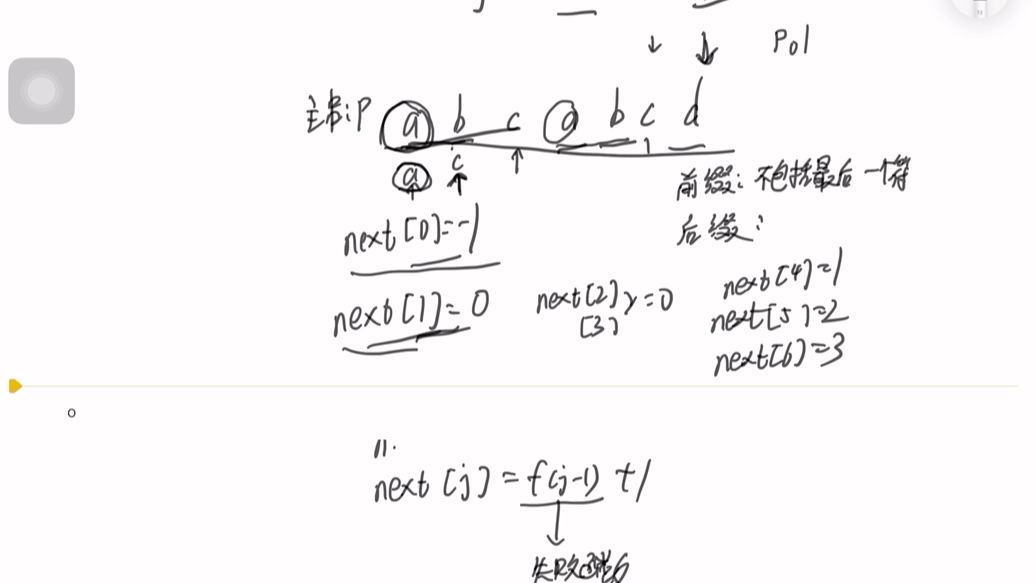 Pol
主串:P a b c a b c d
a c
前缀: 不包括最后一个符
后缀:
next[0]=-1
next[1]=0
next[2] }=0
[3]
next[4]=1
next[5]=2
next[6]=3
11.
next[j]=f(j-1)+1
失败函数